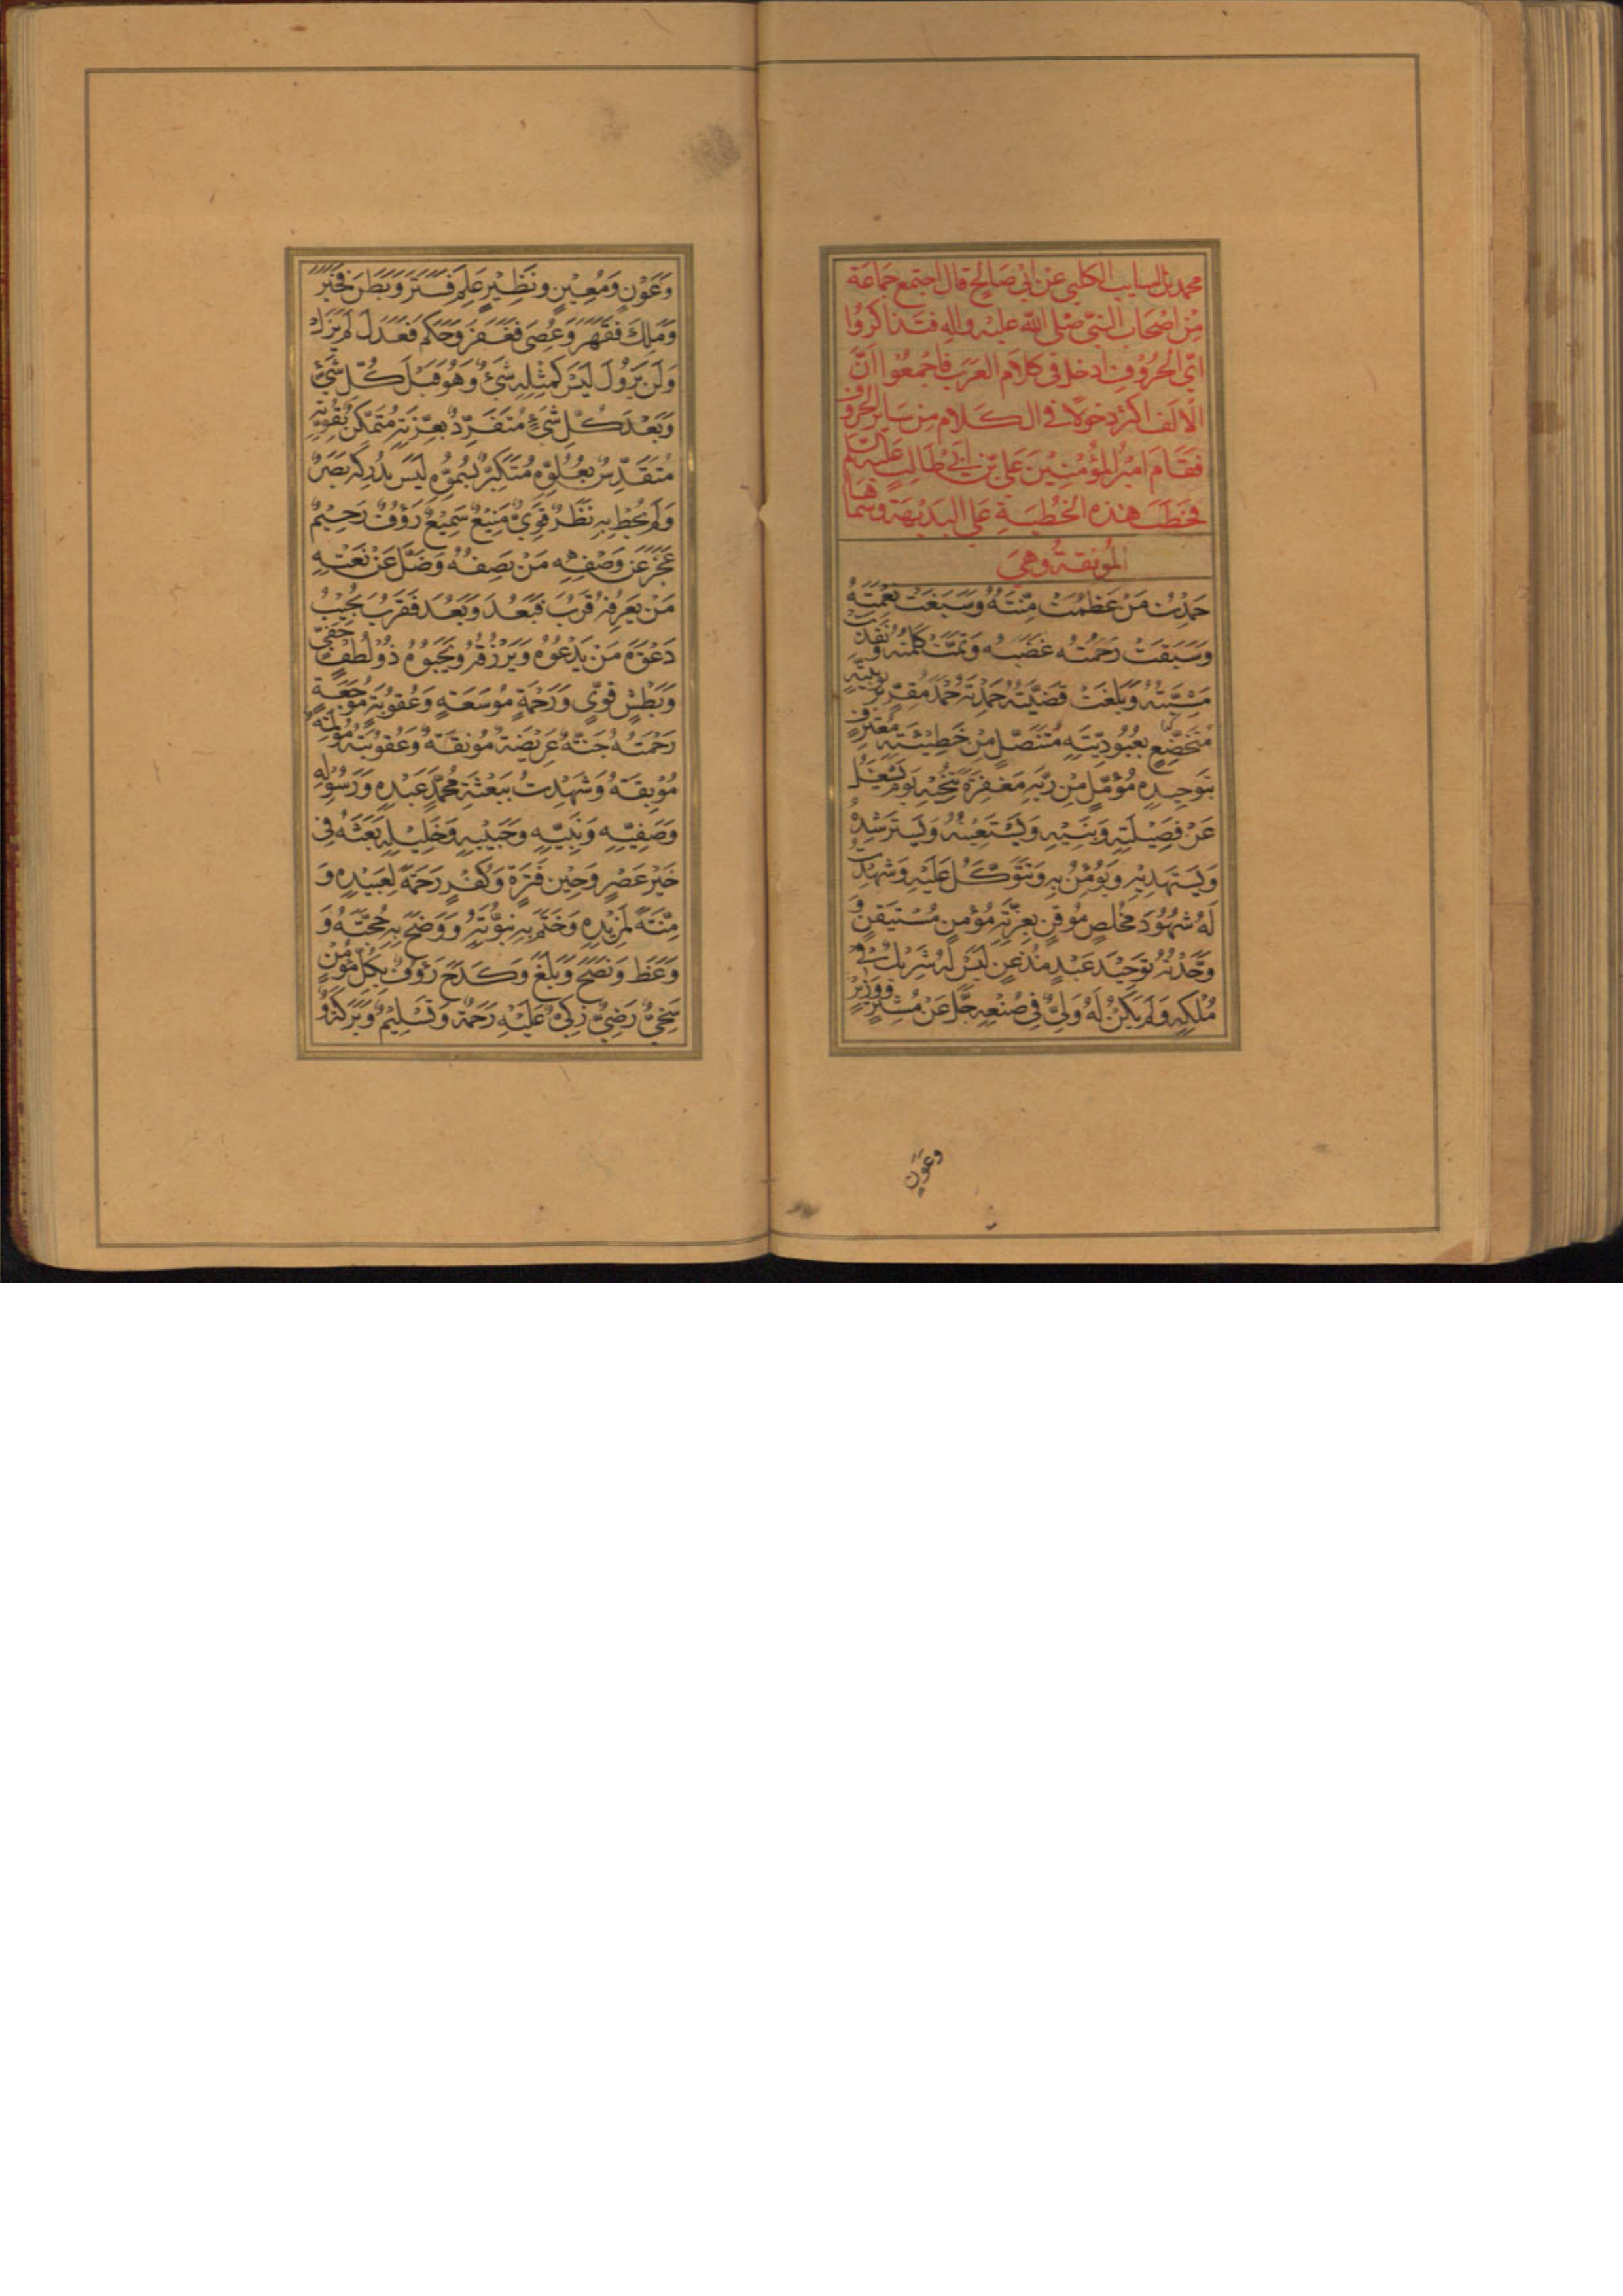 محمد بن السايب الكلبي عن ابي صالح قال اجتمع جماعة
من اصحاب النبي صلى الله عليه واله فتذاكروا
اي الحروف ادخل في كلام العرب فاجمعوا ان
الالف اكثر دخولا في الكلام من ساير الحروف
فقام امير المؤمنين علي بن ابي طالب عليه السلم
فخطب هذه الخطبة على البديهة وسماها
المونقة وهي
حَمِدْتُ مَنْ عَظُمَتْ مِنَّتُهُ وَسَبَغَتْ نِعْمَتُهُ
وَسَبَقَتْ رَحْمَتُهُ غَضَبَهُ وَتَمَّتْ كَلِمَتُهُ وَنَفَذَتْ
مَشِيَّتُهُ وَبَلَغَتْ قَضِيَّتُهُ حَمِدْتُهُ حَمْدَ مُقِرٍّ بِرُبُوبِيَّتِهِ
مُتَخَضِّعٍ بِعُبُودِيَّتِهِ مُتَنَصِّلٍ مِنْ خَطِيئَتِهِ مُعْتَرِفٍ
بِتَوْحِيدِهِ مُؤَمِّلٍ مِنْ رَبِّهِ مَغْفِرَةً تُنْجِيهِ يَوْمَ يُشْغَلُ
عَنْ فَصِيلَتِهِ وَبَنِيهِ وَيَسْتَعِينُهُ وَيَسْتَرْشِدُهُ
وَيَسْتَهْدِيهِ وَيُؤْمِنُ بِهِ وَيَتَوَكَّلُ عَلَيْهِ وَشَهِدْتُ
لَهُ شُهُودَ مُخْلِصٍ مُوقِنٍ بِعِزَّتِهِ مُؤْمِنٍ مُسْتَيْقِنٍ وَ
وَحَّدْتُهُ تَوْحِيدَ عَبْدٍ مُذْعِنٍ لَيْسَ لَهُ شَرِيكٌ فِي
مُلْكِهِ وَلَمْ يَكُنْ لَهُ وَلِيٌّ فِي صُنْعِهِ جَلَّ عَنْ مُشِيرٍ وَوَزِيرٍ
وعون
وَعَوْنٍ وَمُعِينٍ وَنَظِيرٍ عَلِمَ فَسَتَرَ وَبَطَنَ فَخَبَرَ
وَمَلَكَ فَقَهَرَ وَعُصِيَ فَغَفَرَ وَحَكَمَ فَعَدَلَ لَمْ يَزَلْ
وَلَنْ يَزُولَ لَيْسَ كَمِثْلِهِ شَيْءٌ وَهُوَ قَبْلَ كُلِّ شَيْءٍ
وَبَعْدَ كُلِّ شَيْءٍ مُتَفَرِّدٌ بِعِزَّتِهِ مُتَمَكِّنٌ بِقُوَّتِهِ
مُتَقَدِّسٌ بِعُلُوِّهِ مُتَكَبِّرٌ بِسُمُوِّهِ لَيْسَ يُدْرِكُهُ بَصَرٌ
وَلَمْ يُحِطْ بِهِ نَظَرٌ قَوِيٌّ مَنِيعٌ سَمِيعٌ رَؤُفٌ رَحِيمٌ
عَجَزَ عَنْ وَصْفِهِ مَنْ يَصِفُهُ وَضَلَّ عَنْ نَعْتِهِ
مَنْ يَعْرِفُهُ قَرُبَ فَبَعُدَ وَبَعُدَ فَقَرُبَ يُجِيبُ
دَعْوَةَ مَنْ يَدْعُوهُ وَيَرْزُقُهُ وَيَحْبُوهُ ذُو لُطْفٍ خَفِيٍّ
وَبَطْشٍ قَوِيٍّ وَرَحْمَةٍ مُوسَعَةٍ وَعُقُوبَةٍ مُوجَعَةٍ
رَحْمَتُهُ جَنَّةٌ عَرِيضَةٌ مُونِقَةٌ وَعُقُوبَتُهُ مُؤْلِمَةٌ
مُوبِقَةٌ وَشَهِدْتُ بِبَعْثَةِ مُحَمَّدٍ عَبْدِهِ وَرَسُولِهِ
وَصَفِيِّهِ وَنَبِيِّهِ وَحَبِيبِهِ وَخَلِيلِهِ بَعَثَهُ فِي
خَيْرِ عَصْرٍ وَحِينَ فَتْرَةٍ وَكُفْرٍ رَحْمَةً لِعَبِيدِهِ وَ
مِنَّةً لِمَزِيدِهِ وَخَتَمَ بِهِ نُبُوَّتَهُ وَوَضَحَ بِهِ حُجَّتَهُ وَ
وَعَظَ وَنَصَحَ وَبَلَّغَ وَكَدَحَ رَؤُفٌ بِكُلِّ مُؤْمِنٍ
سَخِيٌّ رَضِيٌّ زَكِيٌّ عَلَيْهِ رَحْمَةٌ وَتَسْلِيمٌ وَبَرَكَةٌ وَ